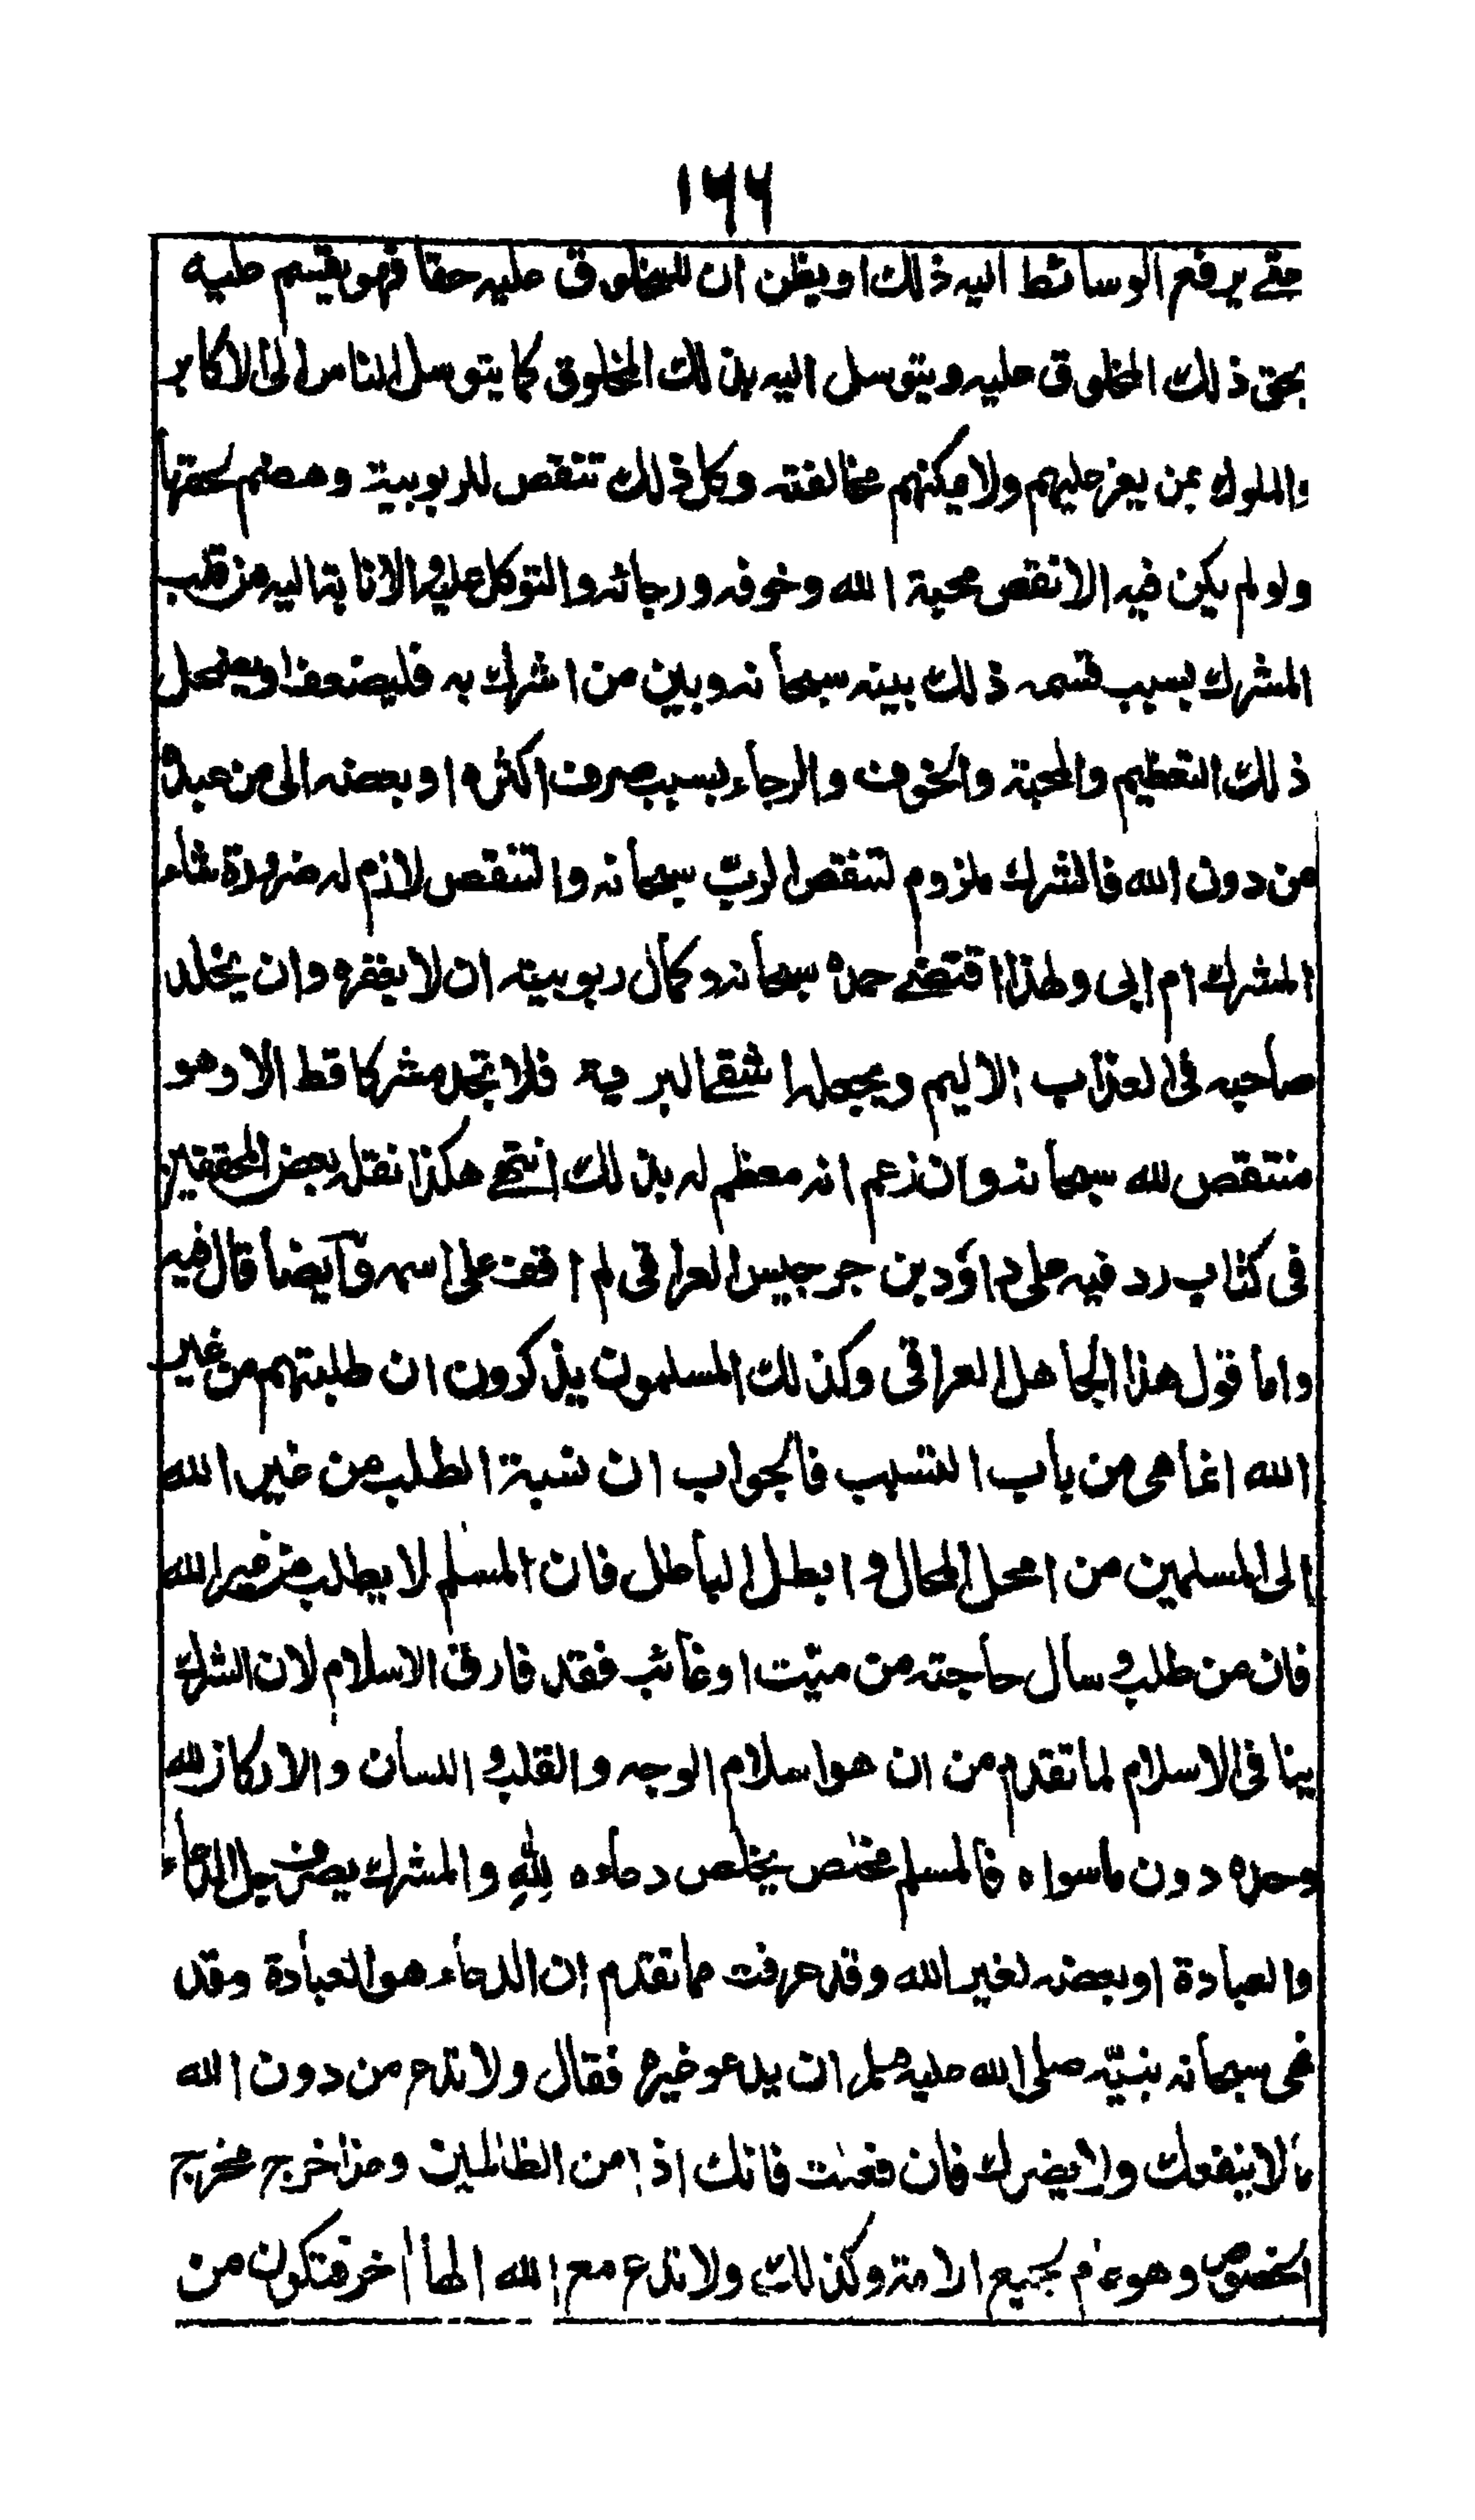 ١٦٦
حتى يرفع الوسائط اليه ذلك او يظن ان للمخلوق عليه حقا فهو يقسم عليه
بحق ذلك المخلوق عليه ويتوسل اليه بذلك المخلوق كما يتوسل الناس الى الاكابر
والملوك بمن يعز عليهم ولا يمكنهم مخالفته وكل ذلك تنقص للربوبية وهضم لحقها
ولو لم يكن فيه الا نقص محبة الله وخوفه ورجائه والتوكل عليه والانابة اليه من قلب
المشرك بسبب قسمه ذلك بينه سبحانه وبين من اشرك به فليضعف او يضمحل
ذلك التعظيم والمحبة والخوف والرجاء بسبب صرف اكثره او بعضه الى من عبده
من دون الله فالشرك ملزوم لتنقص الرب سبحانه والتنقص لازم له ضرورة شاء
المشرك ام ابى ولهذا اقتضى حمده سبحانه وكمال ربوبيته ان لا يغفره وان يخلد
صاحبه فى العذاب الاليم ويجعله اشقى البرية فلا تجد مشركا قط الا وهو
متنقص لله سبحانه وان زعم انه معظم له بذلك انتهى هكذا نقله بعض المحققين
فى كتاب رد فيه على داؤد بن جرجيس العراقى لم اقف على اسمه وآيضا قال فيه
واما قول هذا الجاهل العراقى وكذلك المسلمون يذكرون ان طلبتهم من غير
الله انما هى من باب التسبب فالجواب ان نسبة الطلب من غير الله
الى المسلمين من امحل المحال وابطل الباطل فان المسلم لا يطلب من غير الله
فان من طلب و سال حاجته من ميت او غائب فقد فارق الاسلام لان الشرك
ينافى الاسلام لما تقدم من ان هو اسلام الوجه والقلب و اللسان والاركان لله
وحده دون ما سواه فالمسلم مختص يخلص دعاءه لِلّٰهِ والمشرك يصرف جل الدعاء
والعبادة او بعضه لغير الله وقد عرفت مما تقدم ان الدعاء هو العبادة وقد
نهى سبحانه نبيّه صلى الله عليه وسلم ان يدعو غيره فقال ولا تدع من دون الله
ما لا ينفعك ولا يضرك فان فعلت فانك اذا من الظالمين وهذا خرج مخرج
الخصوص وهو عام بجميع الامة وكذلك ولا تدع مع الله الها آخر فتكون من